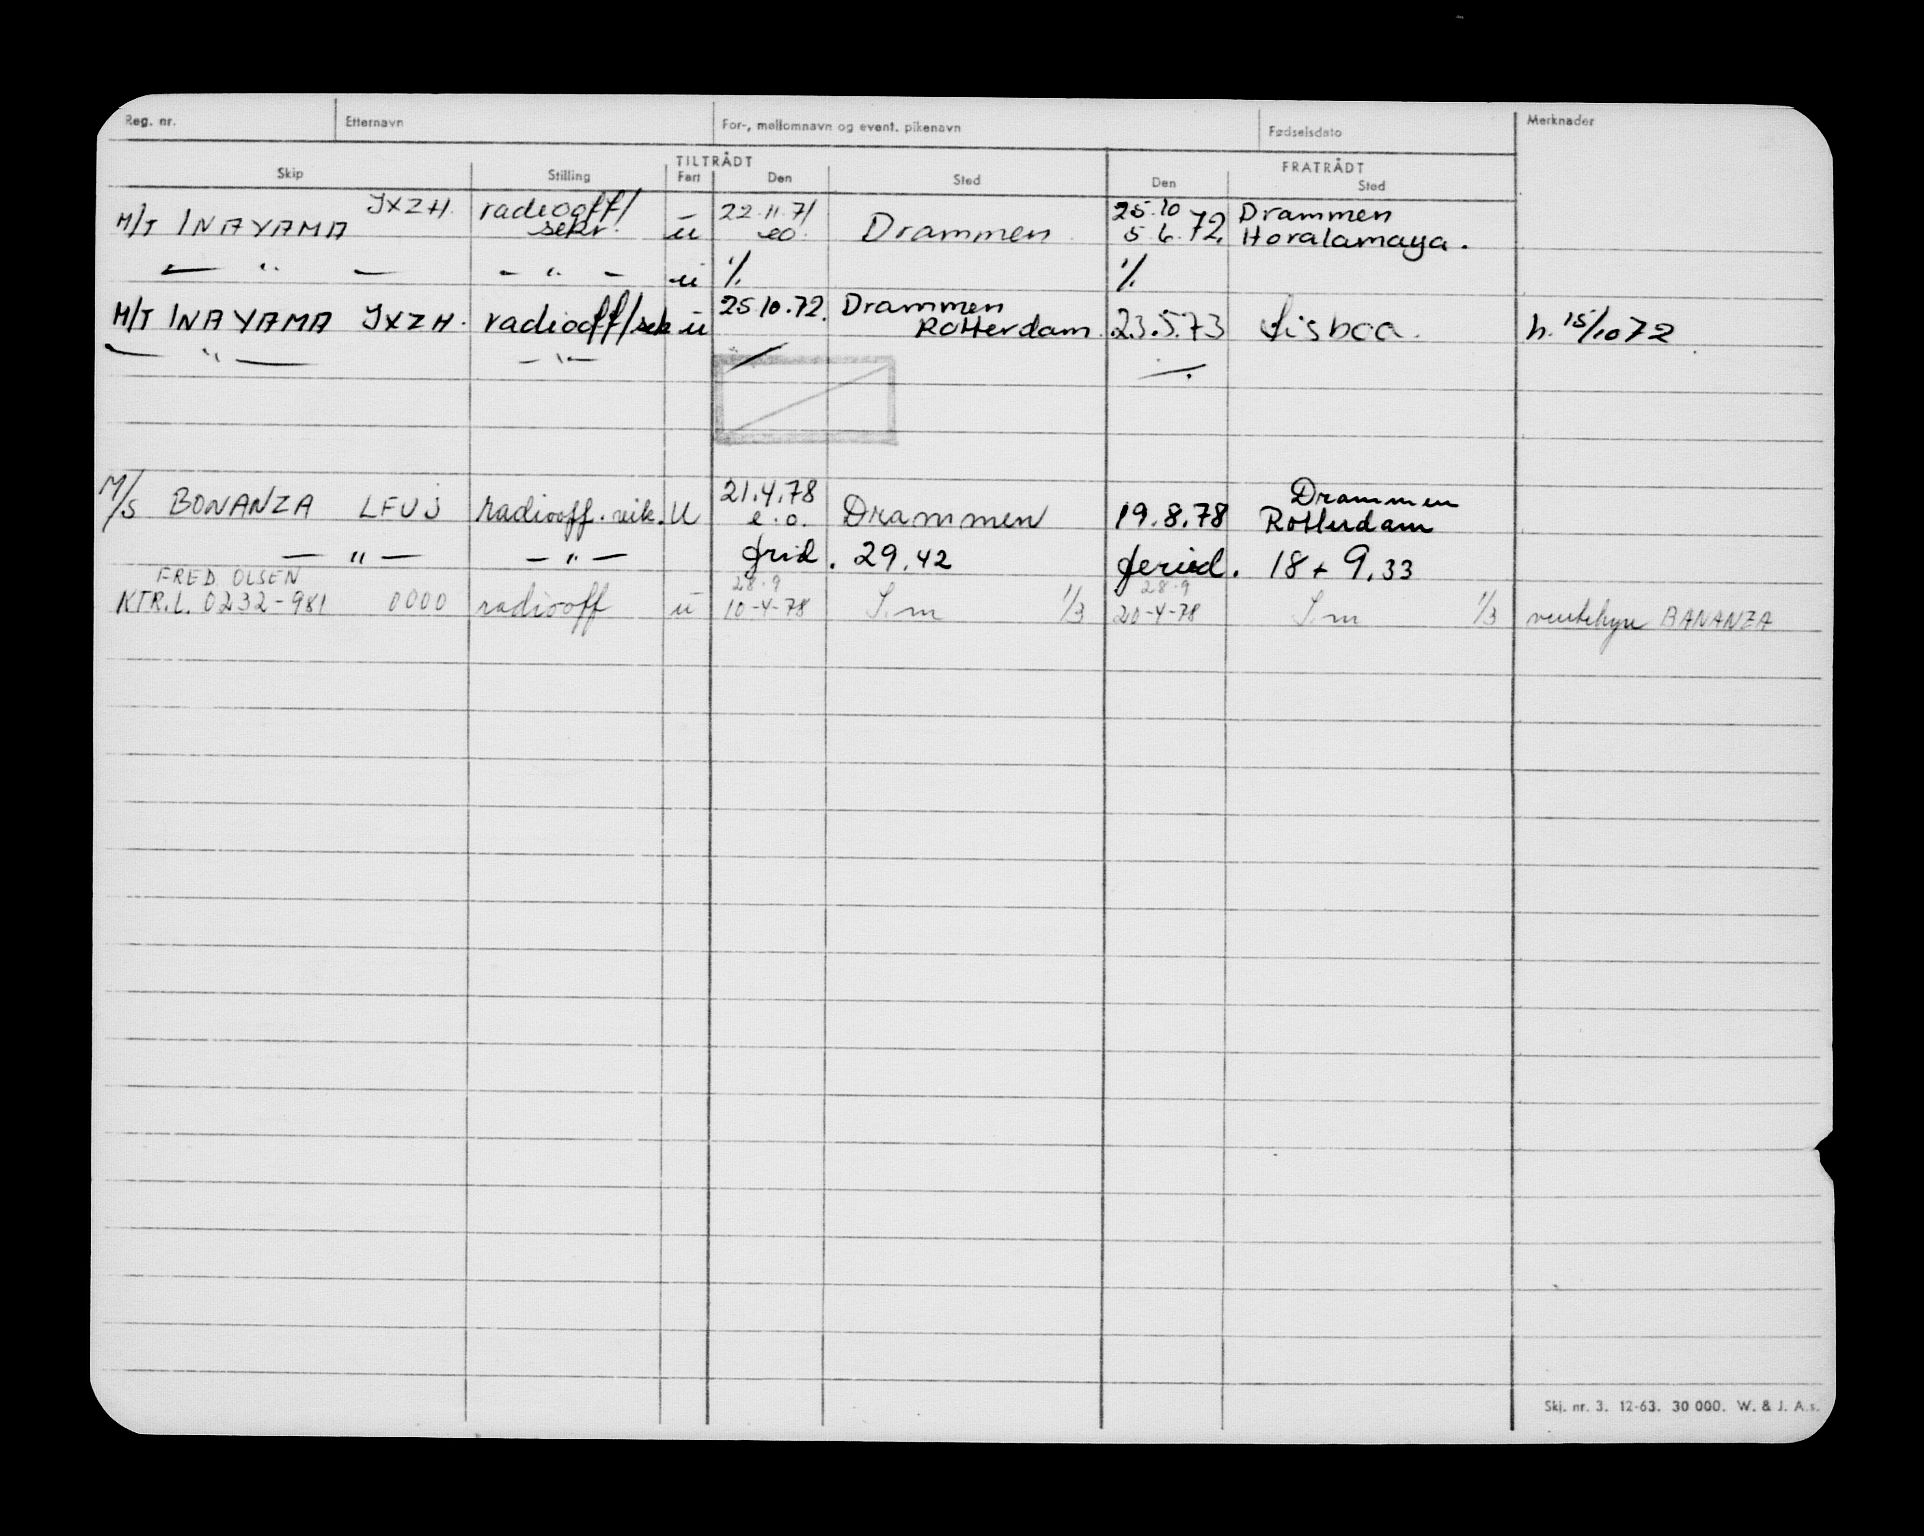 Reg. nr. Etternavn For-, mellomnavn og event. pikenavn Fødselsdato Merknader
TILTRÅDT FRATRÅDT
Skip Stilling Fart Den Sted Den Sted
M/T INAYAMA JXZH. radiooff/ sekr. ü 22.11.71 eo. Drammen 25.10 5.6.72. Drammen Horalamaya.
— " — — " — ü ·/. ·/.
M/T INAYAMA JXZH. radiooff/sek ü 25.10.72. Drammen Rotterdam. 23.5.73 Lisboa. h. 15/10 72
— " — — " —
M/S BONANZA LFUJ radiooff. vik. U 21.4.78 e.o. Drammen 19.8.78 Drammen Rotterdam
— " — — " — frid. 29,42 feried. 18 + 9,33
FRED. OLSEN 28.9 28.9
KTR.L. 0232-981 0000 radiooff ü 10-4-78 S.m 1/3 20-4-78 S.m 1/3 ventehyre BANANZA
Skj. nr. 3. 12-63. 30 000. W. & J. A.s.